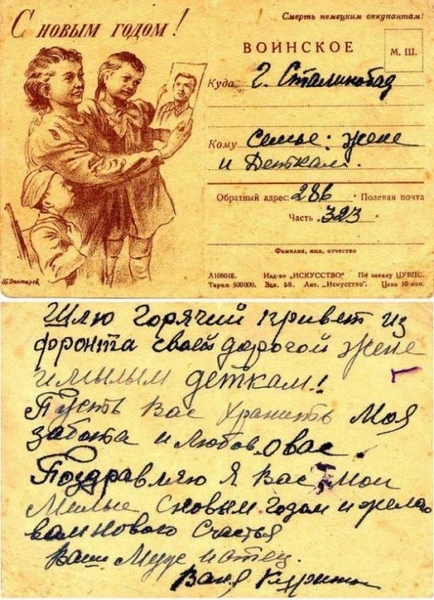 С НОВЫМ ГОДОМ!
Смерть немецким оккупантам!
ВОИНСКОЕ
М. Ш.
Куда г. Сталинобад
Кому Семье: жене
и Деткам.
Обратный адрес: 286 Полевая почта
Часть 323
Фамилия, имя, отчество
Л106018. Изд-во „ИСКУССТВО“ По заказу ЦУВПС.
Тираж 500000. Зак. 58. Лит. „Искусство“. Цена 10 коп.
Шлю горячий привет из
фронта своей дорогой жене
и милым деткам!
Пусть Вас хранить Моя
забота и любов о вас.
Поздравляю я Вас Мои
Милые с новым годом и желаю
вам нового счастья
Ваш Муж и отец.
Ваня